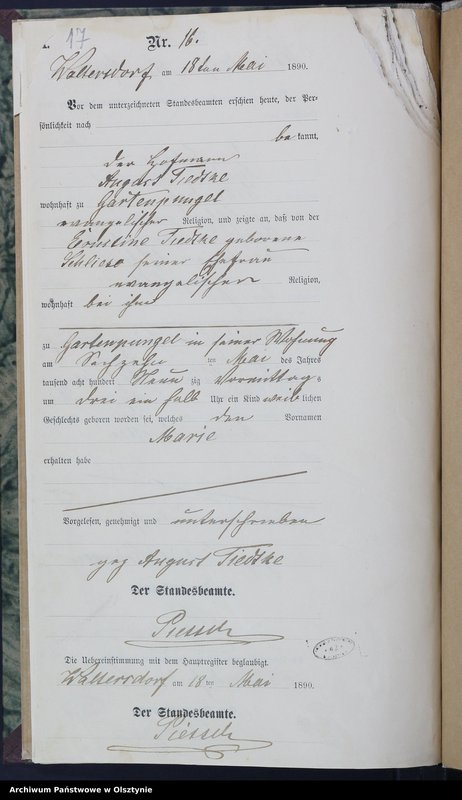 17
Nr. 16.
Waltersdorf, am 18ten Mai 1890.
Vor dem unterzeichneten Standesbeamten erschien heute, der Per-
sönlichkeit nach
be kannt,
der Hofmann
August Tiedtke
wohnhaft zu Gartenpungel
evangelischer Religion, und zeigte an, daß von der
Ernestine Tiedtke geborene
seiner Ehefrau
evangelischer Religion,
wohnhaft bei ihm
zu Gartenpungel in seiner Wohnung
am Sechzehn ten Mai des Jahres
tausend acht hundert Neun zig Vormittag s
um drei ein halb Uhr ein Kind weib lichen
Geschlechts geboren worden sei, welches den Vornamen
Marie
erhalten habe
Vorgelesen, genehmigt und unterschrieben
gez August Tiedtke
Der Standesbeamte.
Die Uebereinstimmung mit dem Hauptregister beglaubigt.
Waltersdorf am 18 ten Mai 1890.
Der Standesbeamte.
Archiwum Państwowe w Olsztynie